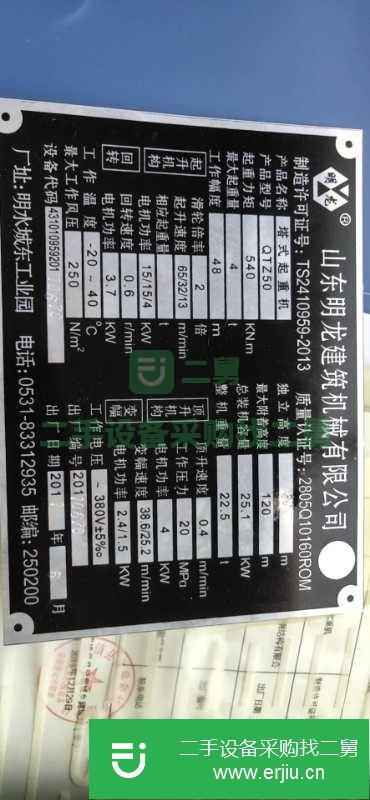 明龙®
山东明龙建筑机械有限公司
制造许可证号：TS2410959-2013 质量认证号：2805Q10160ROM
产品名称 塔式起重机
产品型号 QTZ50
起重力矩 540 KNm
最大起重量 4 t
工作幅度 48 m
独立高度 m
最大附着高度 120 m
总装机容量 25.1 kW
整机重量 22.5 t
起升机构
滑轮倍率 2 倍
起升速度 65/32/13 m/min
相应起重量 t
电机功率 15/15/4 kW
顶升
顶升速度 0.4 m/min
工作压力 20 MPa
电机功率 4 kW
回转
回转速度 0.6 r/min
电机功率 3.7 kW
变幅
变幅速度 38.6/25.2 m/min
电机功率 2.4/1.5 kW
工作温度 -20~40 ℃
工作电压 ~380V±5%
最大工作风压 250 N/m²
设备代码 431010959201
出厂编号
出厂日期 201 年 6 月
厂址：明水城东工业园 电话：0531-83312835 邮编：250200
二舅
二手设备采购找二舅
二手设备采购找二舅
www.erjiu.cn